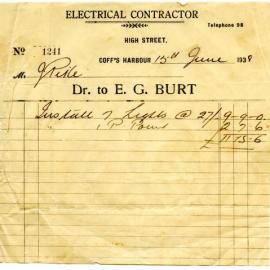 ELECTRICAL CONTRACTOR
Telephone 98
HIGH STREET,
No 1241
COFF'S HARBOUR 15th June 1938
M
Dr. to E. G. BURT
Install 7 Lights @ 27/- 9-9-0
1 P Point 2 7 6
£ 11 15-6